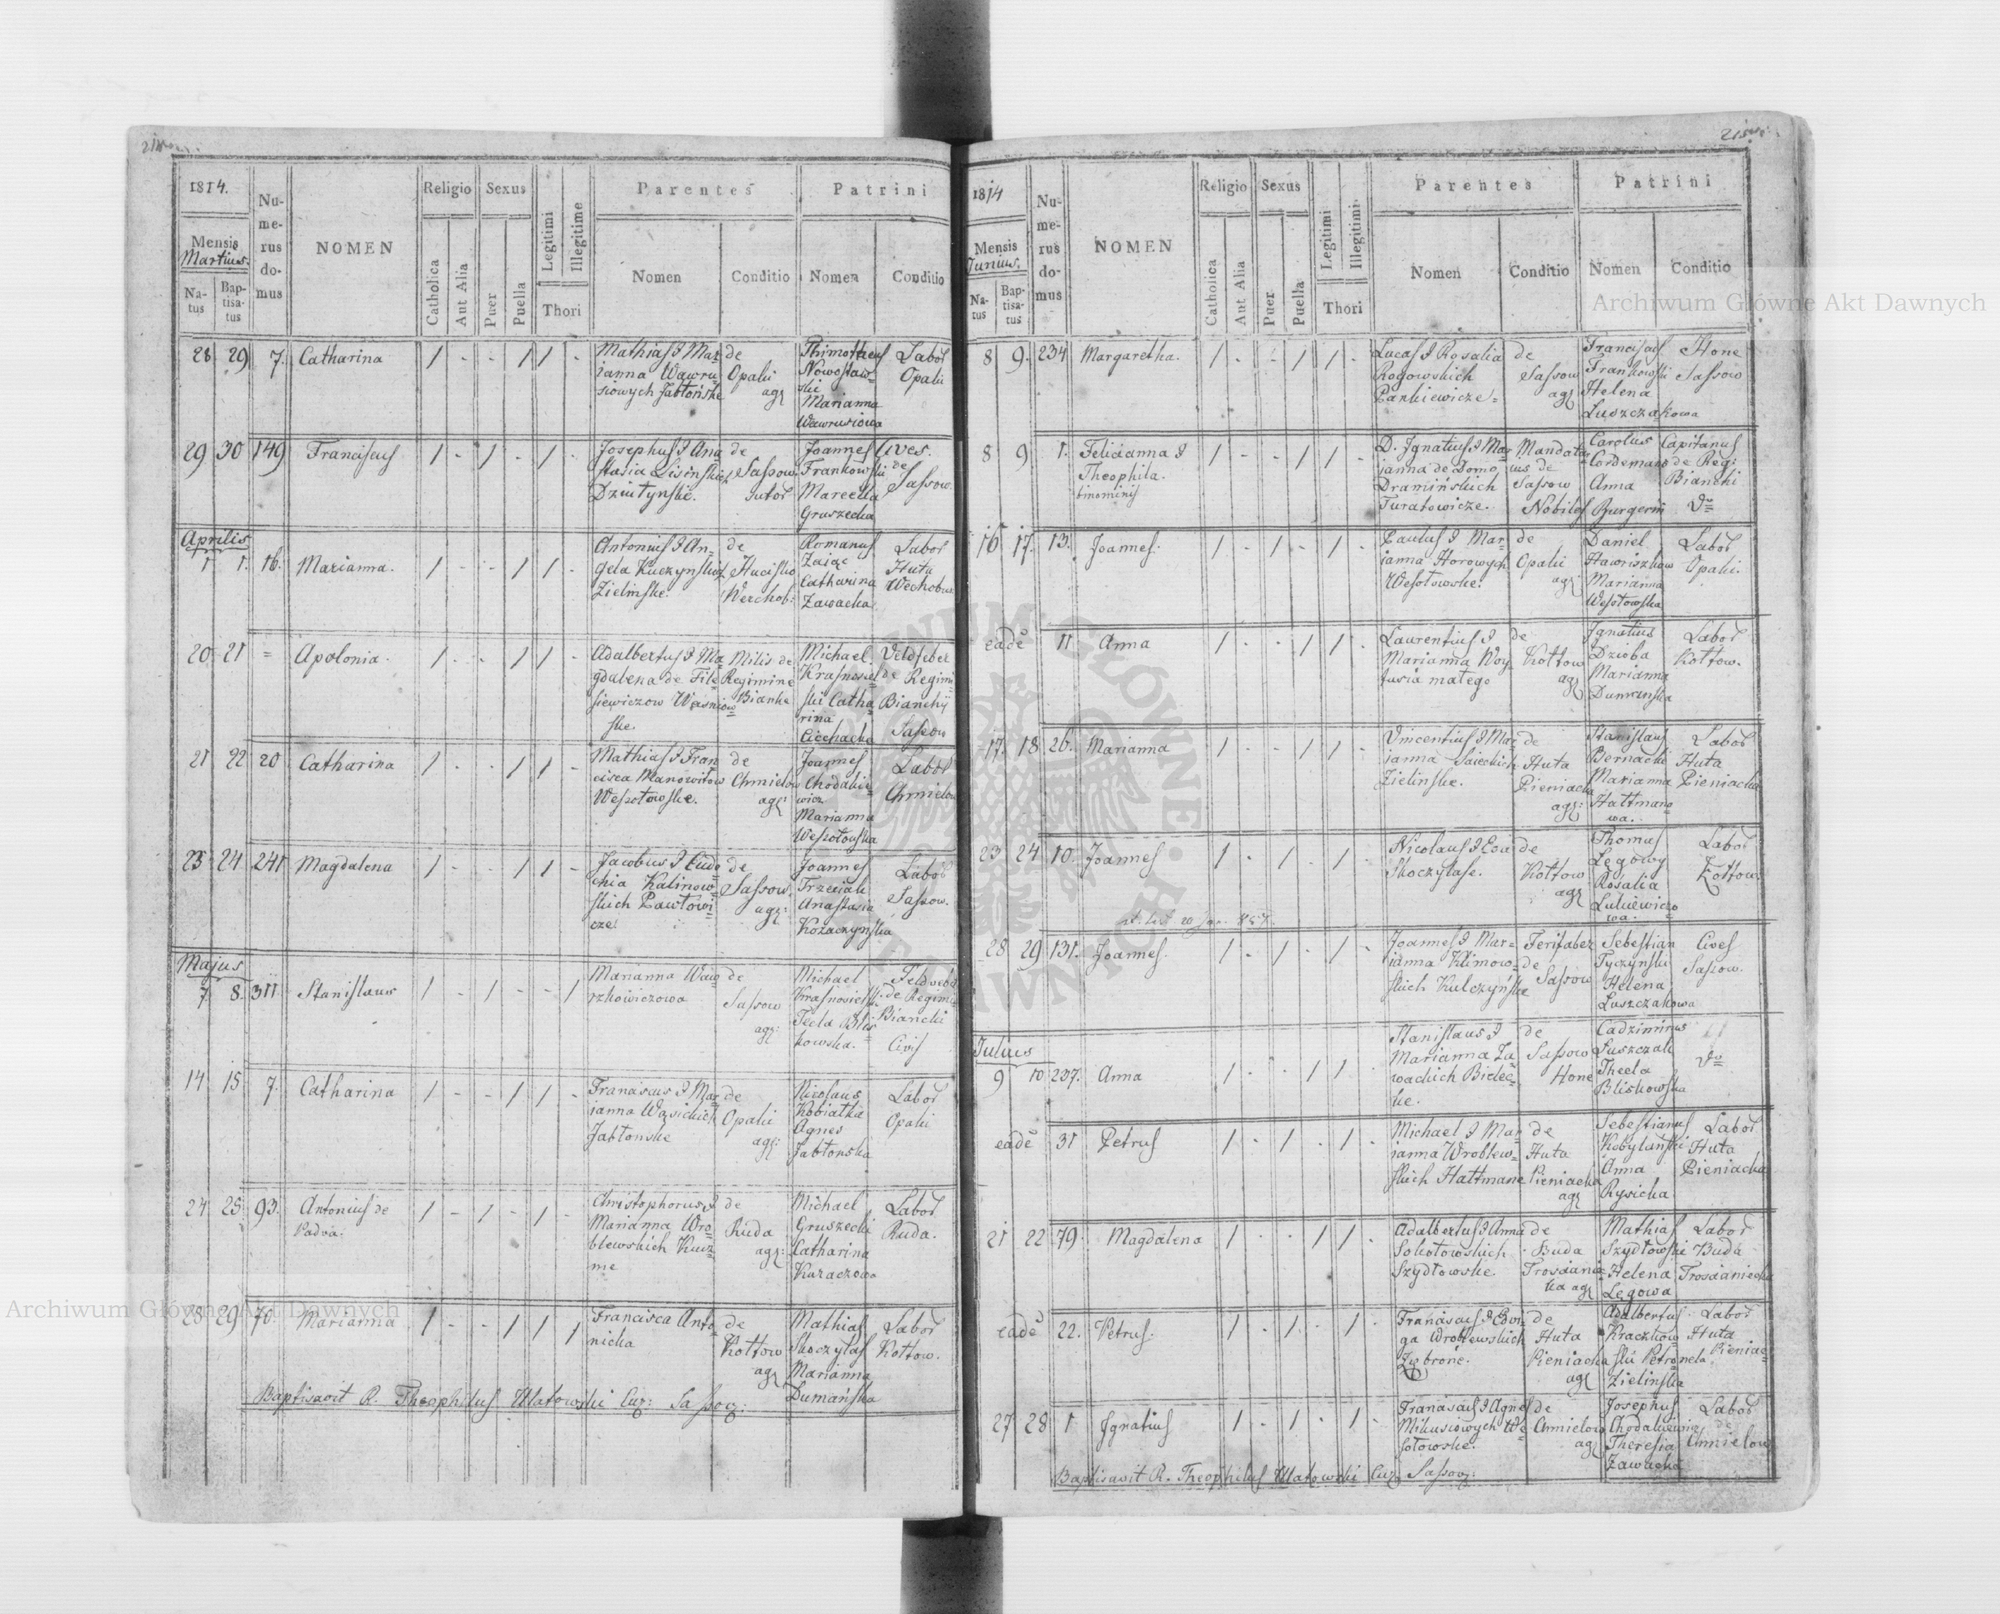 1814.
Numerus domus
NOMEN
Religio
Sexus
Legitimi
Illegitime
Parentes
Patrini
Mensis
Martius.
Catholica
Aut Alia
Puer
Puella
Thori
Nomen
Conditio
Nomen
Conditio
Natus
Baptisatus
28 29 7. Catharina 1 - - 1 1 -
Mathias & Mar=
ianna Wawru
siowych Jabłońskie
de
Opaki
agr
Thimotheus
Nowosław=
ski
Marianna
Wawrusiowa
Labor
Opaki
29 30 149 Franciscus 1 - 1 - 1 -
Josephus & Ana
stasia Lisinskich
Dziutynskie.
de
Sassow
sutor
Joannes
Frankowski
Marcella
Gruszecka
Cives.
de
Sassow
Aprilis
1 1. 16. Marianna. 1 - - 1 1 -
Antonius & An=
gela Kuczynskich
Zielinskie.
de
Hucisko
Werchob:
Romanus
Zając
Catharina
Zawacka.
Labor
Huta
Wechobuz
20 21 = Apolonia. 1 - - 1 1 -
Adalbertus & Ma=
gdalena de File=
siewiczow Wasniow=
skie.
Milis de
Regimine
Bianke
Michael
Krasnosiel=
ski Catha=
rina
Ciechacka
Veldfeber
de Regimi
Bianchy
Sassow
21 22 20 Catharina 1 - - 1 1 -
Mathias & Fran
cisca Manowitow
Wesołowskie.
de
Chmielow
agr:
Joannes
Chodakie=
wicz
Marianna
Wesołowska
Labor
Chmielow
23 24 241 Magdalena 1 - - 1 1 -
Jacobus & Eudo=
chia Kalinow=
skich Pawłowi=
cze
de
Sassow
agr:
Joannes
Trzeciak
Anastasia
Kozaczyńska
Labor
Sassow.
Majus
7 8. 311 Stanislaus 1 - 1 - - 1
Marianna Waw=
rzkowiczowa
de
Sassow
agr:
Michael
Krasnosielski
Tecla Blis=
kowska.
Feldwebel
de Regimi
Biancki
Civis
14 15 7. Catharina 1 - - 1 1 -
Franciscus & Mar=
janna Wąsickich
Jabłonskie
de
Opaki
agr:
Nicolaus
Kobiałka
Agnes
Jabłonska
Labor
Opaki
24 25 93. Antonius de
Padua. 1 - 1 - 1 -
Christophorus &
Marianna Wro=
blewskich Kuz=
me
de
Ruda
agr:
Michael
Gruszecki
Catharina
Kuraczowa
Labor
Ruda.
28 29 70. Marianna 1 - - 1 1 1
Francisca Anto=
nicka
de
Kołtow
agr
Mathias
Skoczylas
Marianna
Dumańska
Labor
Kołtow.
Baptisavit R. Theophilus Ulatowski Cur: Sassov:
1814
Numerus domus
NOMEN
Religio
Sexus
Legitimi
Illegitimi
Parentes
Patrini
Mensis
Junius.
Catholica
Aut Alia
Puer
Puella
Thori
Nomen
Conditio
Nomen
Conditio
Natus
Baptisatus
8 9. 234 Margaretha. 1 - - 1 1 -
Lucas & Rosalia
Rogowskich
Pankiewicze=
de
Sassow
agr
Franciscus
Frankowski
Helena
Luszczakowa
Hone
Sassow
8 9 1. Felicianna &
Theophila.
binominis 1 - - 1 1 -
D. Ignatius & Mar=
janna de Domo
Dramińskich
Turatowicze.
Mandata=
rius de
Sassow
Nobiles
Carolus
Cordemans
Anna
Burgerin
Capitanus
de Regi
Bianski
Do
16 17. 13. Joannes. 1 - 1 - 1 -
Paulus & Mar=
janna Horowych
Wesołowskie.
de
Opaki
agr
Daniel
Hawriszkow
Marianna
Wesołowska
Labor
Opaki.
eadē 11 Anna 1 - - 1 1 -
Laurentius &
Marianna Woy=
tusia małego
de
Kołtow
agr
Ignatius
Dzioba
Marianna
Dumanska
Labor
Kołtow.
17. 18 26. Marianna 1 - - 1 1 -
Vincentius & Mar=
janna Saieckich
Zielińskie.
de
Huta
Pieniacka
agr:
Stanislaus
Bernacki
Marianna
Hattmano=
wa.
Labor
Huta
Pieniacka
23 24 10. Joannes 1 - 1 - 1 -
Nicolaus & Eva
Skoczylase.
de
Kołtow
agr
Thomas
Legowy
Rosalia
Lukiewiczo
wa.
Labor
Kołtow
28 29 131. Joannes. 1 - 1 - 1 -
Joannes & Mar=
ianna Klimow=
skich Kulczyńskie
Ferifaber
de
Sassow
Sebestian
Tyczynski
Helena
Luszczakowa
Cives
Sassow.
Julius
9 10 237. Anna 1 - - 1 1 -
Stanislaus &
Marianna Za=
wackich Bielec=
kie.
de
Sassow
Hone
Cadzimirus
Luszczak
Thecla
Bliskowska
Do
eadē 31 Petrus 1 - 1 - 1 -
Michael & Mar=
janna Wroblew=
skich Hattmane
de
Huta
Pieniacka
agr
Sebestianus
Kobylański
Anna
Rysicka
Labor
Huta
Pieniacka
21 22 79. Magdalena 1 - - 1 1 -
Adalbertus & Anna
Sokołowskich
Szydłowskie.
de
Buda
Trościanie=
cka agr
Mathias
Szydłowski
Helena
Legowa
Labor
Buda
Trosciāniecka
eadē 22. Petrus. 1 - 1 - 1 -
Franciscus & Edwi=
ga Wroblewskich
Zębronie.
de
Huta
Pieniacka
agr
Adalbertus
Kraczkow=
ski Petronela
Zielinska
Labor
Huta
Pieniac=
27 28 1 Ignatius 1 - 1 - 1 -
Franciscus & Agnes
Mikusiowych We=
sołowskie.
de
Chmielow
agr
Josephus
Chodakiewicz
Theresia
Zawacka
Labor
de
Chmielow
Baptisavit R. Theophilus Ulatowski Cur. Sassov:
Archiwum Główne Akt Dawnych
Archiwum Główne Akt Dawnych